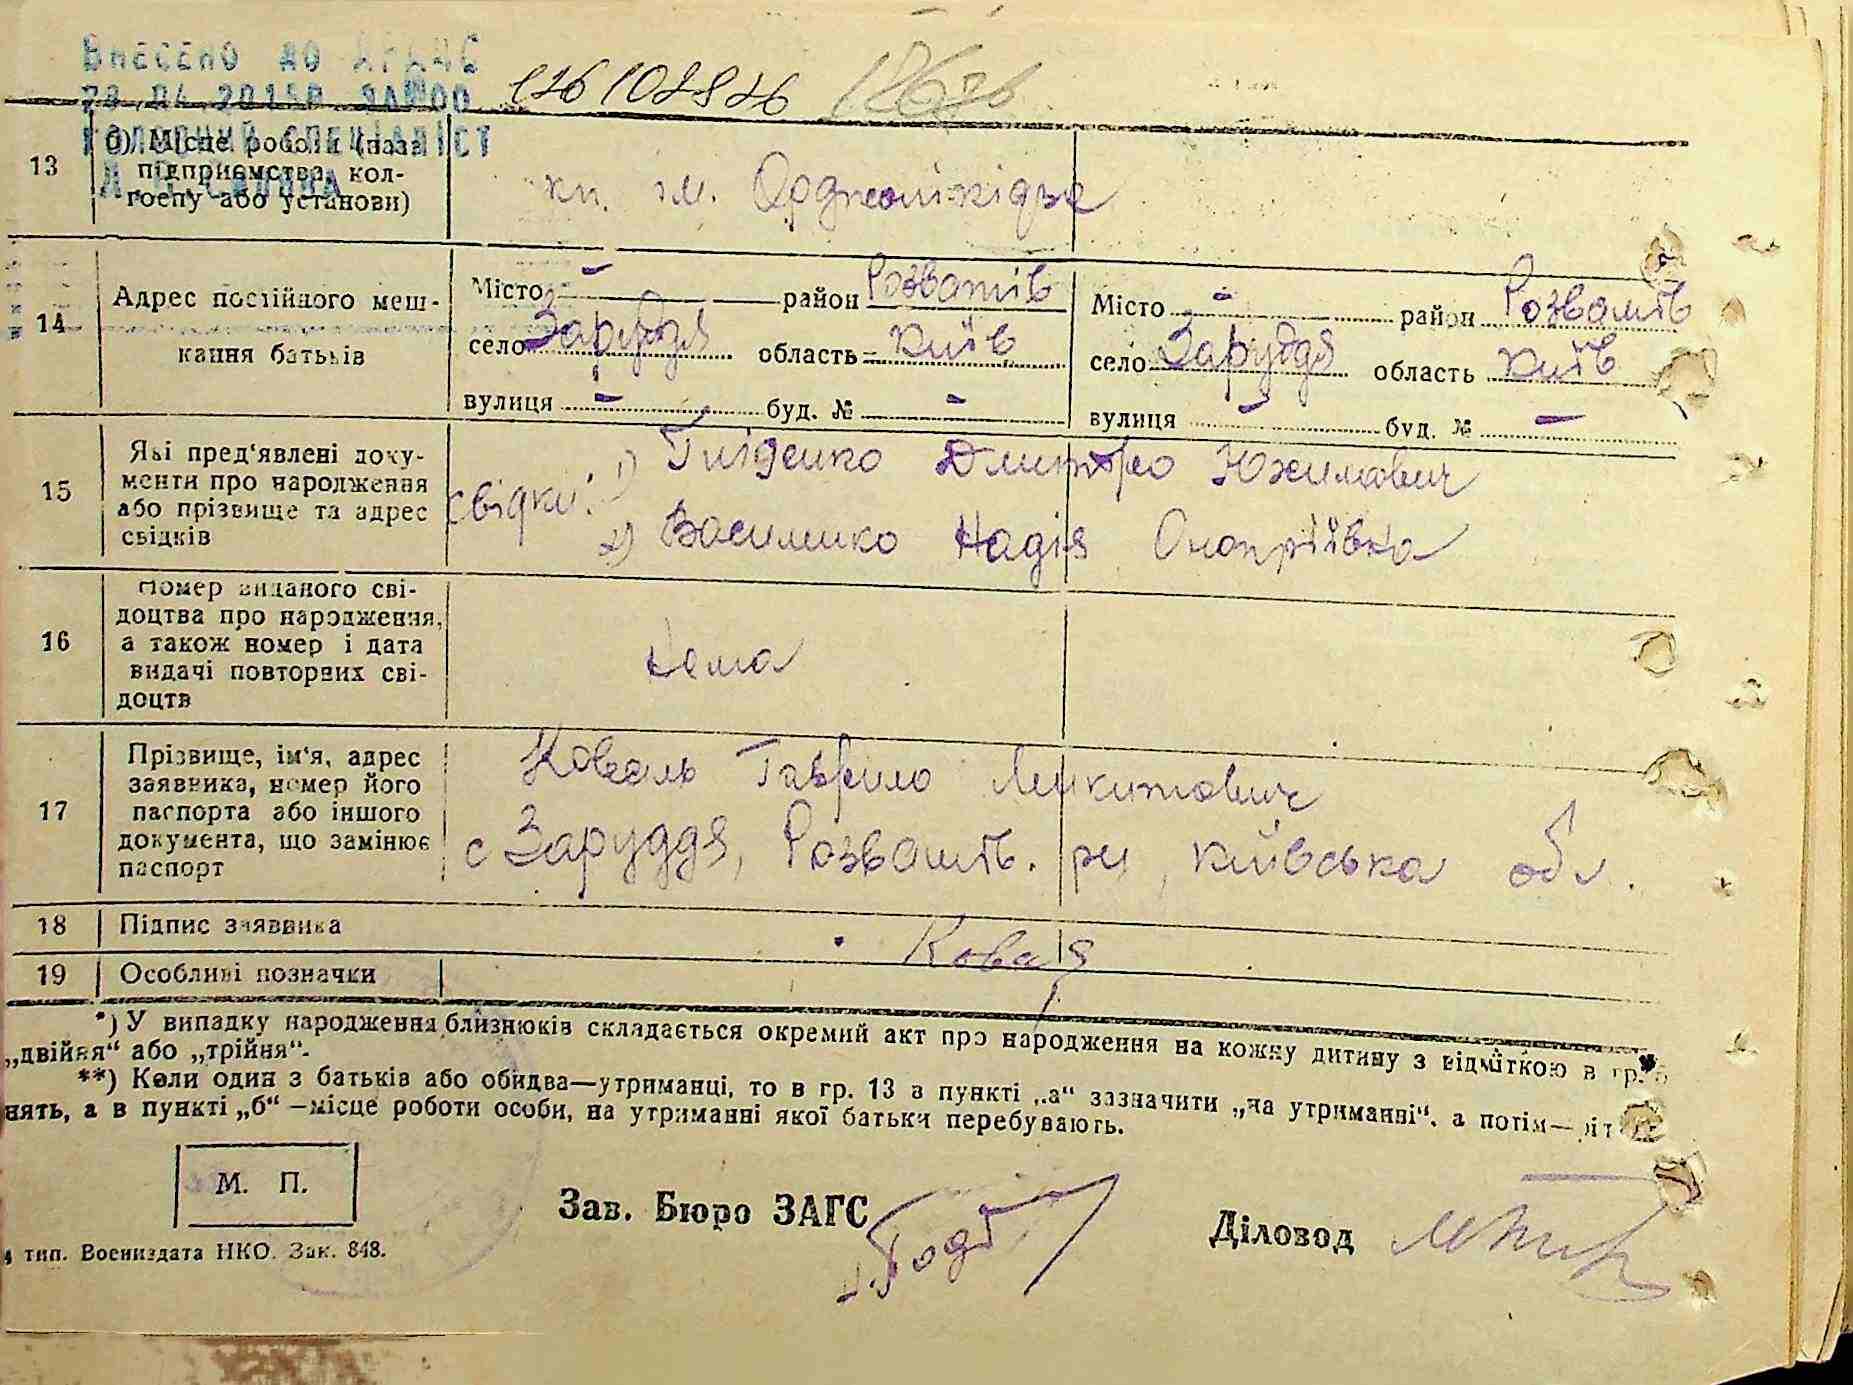 Внесено до ДРАЦС
головний спеціаліст
13 б) Місце роботи (назва
підприємства, кол-
госпу або установи)
кп. ім. Орджонікідзе
14 Адрес постійного меш-
кання батьків
Місто – район Розважів
село Заруддя область Київ
вулиця – буд. № –
Місто – район Розважів
село Заруддя область Київ
вулиця – буд. № –
15 Які пред‘явлені доку-
менти про народження
або прізвище та адрес
свідків
свідки: 1) Дмитро Юхимович
2) Василико Надія Онопріївна
16 Номер виданого сві-
доцтва про народження,
а також номер і дата
видачі повторних сві-
доцтв
Нема
17 Прізвище, ім‘я, адрес
заявника, номер його
паспорта або іншого
документа, що замінює
паспорт
Коваль Гаврило Микитович
с Заруддя, Розважів. рн, Київська обл.
18 Підпис заявника
19 Особливі позначки
*) У випадку народження близнюків складається окремий акт про народження на кожну дитину з відміткою в гр.
„двійня“ або „трійня“.
**) Коли один з батьків або обидва—утриманці, то в гр. 13 в пункті „а“ зазначити „на утриманні“, а потім—
нять, а в пункті „б“ —місце роботи особи, на утриманні якої батьки перебувають.
М. П.
Зав. Бюро ЗАГС
Діловод
тип. Воениздата НКО. Зак. 848.